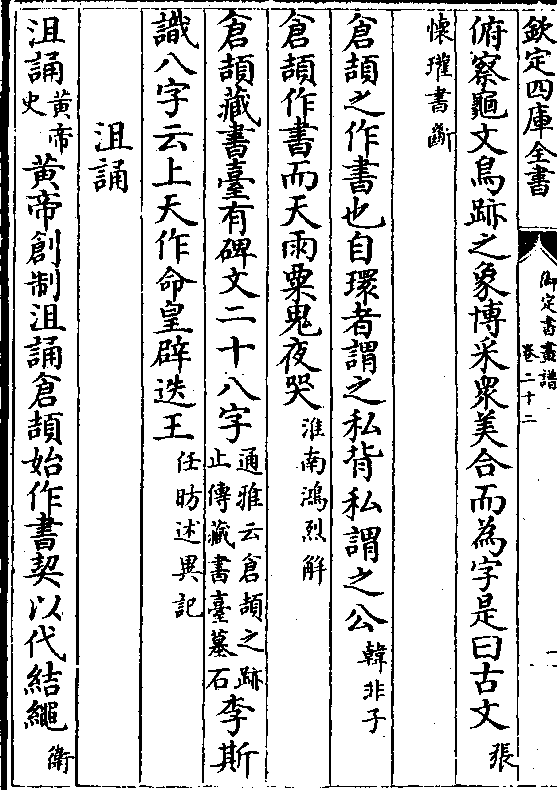 欽定四庫全書
御定書畫譜
卷二十二
俯察龜文鳥跡之象博采衆美合而為字是曰古文張
懷瓘書斷
倉頡之作書也自環者謂之私背私謂之公韓非子
倉頡作書而天雨粟鬼夜哭淮南鴻烈解
倉頡藏書臺有碑文二十八字通雅云倉頡之跡止傳藏書臺墓石李斯
識八字云上天作命皇辟迭王任昉述異記
沮誦
沮誦黃帝史黃帝創制沮誦倉頡始作書契以代結繩衛